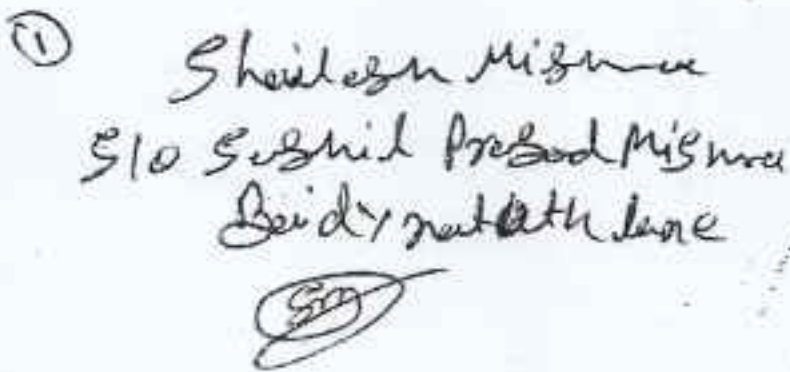 ①
Shailesh Mishra
S/o Sushil Prasad Mishra
Baidynath lane
SM